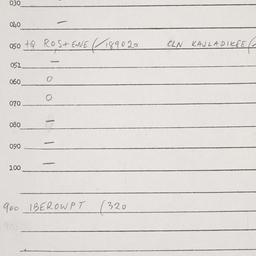 030
040 –
050 +Q ROS+ENE (/189020 CLN KAJLADIKEE (
052 –
060 0
070 0
080 –
090 –
100 –
900 IBEROWPT (320